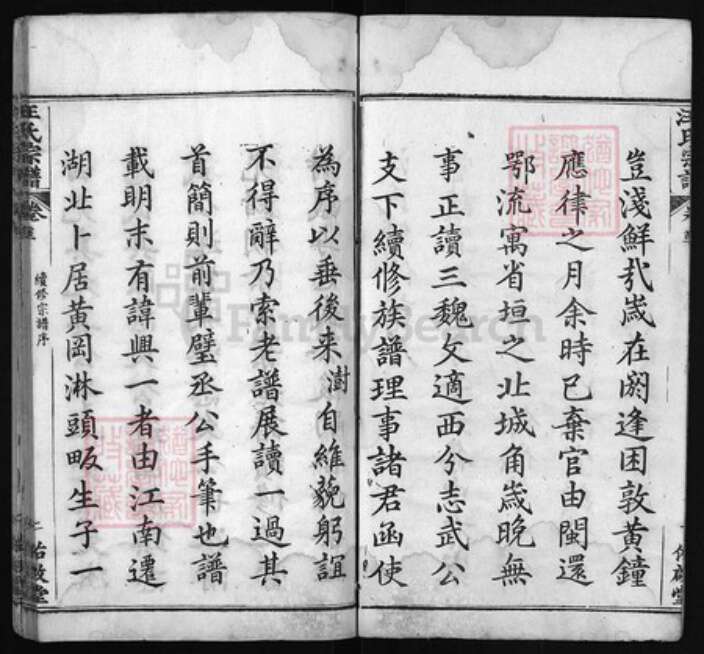 汪氏宗譜 卷首
豈淺鮮哉歲在閼逢困敦黃鐘
應律之月余時已棄官由閩還
鄂流寓省垣之北城角歲晚無
事正讀三魏文適西分志武公
支下續修族譜理事諸君函使
為序以垂後来澍自維藐躬誼
不得辭乃索老譜展讀一過其
首簡則前輩璧丞公手筆也譜
載明末有諱興一者由江南遷
湖北卜居黃岡淋頭畈生子一
汪氏宗譜 卷首
續修宗譜序
佑啟堂
FamilySearch